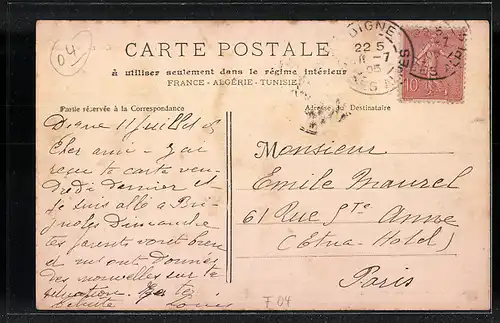 04
CARTE POSTALE
à utiliser seulement dans le régime intérieur
FRANCE - ALGÉRIE - TUNISIE
Partie réservée à la Correspondance
Adresse du Destinataire
DIGNE
22 5
11 - 7
05
10
Digne 11 Juillet 05
Cher ami - J'ai
reçu ta carte ven-
dredi dernier et
je suis allé à Bri-
gnoles Dimanche
tes parents vont bien
et m'ont donné
des nouvelles sur ta
situation.
Louis
Monsieur
Emile Maurel
61 Rue Ste Anne
(Etna-Hotel)
Paris
F 04